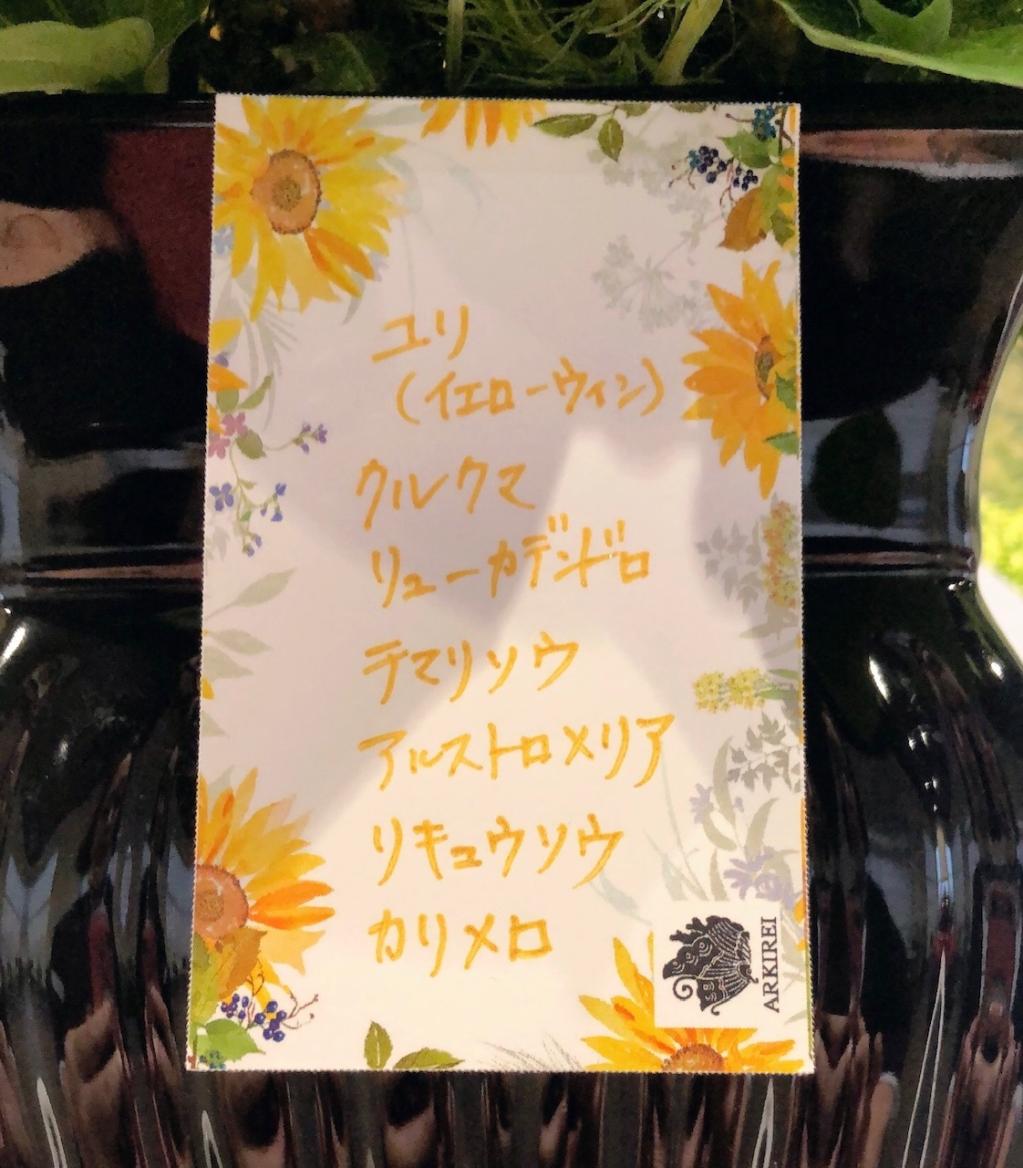 ユリ
(イエローウィン)
クルクマ
リューカデンドロ
テマリソウ
アルストロメリア
リキュウソウ
カリメロ
ARKIREI